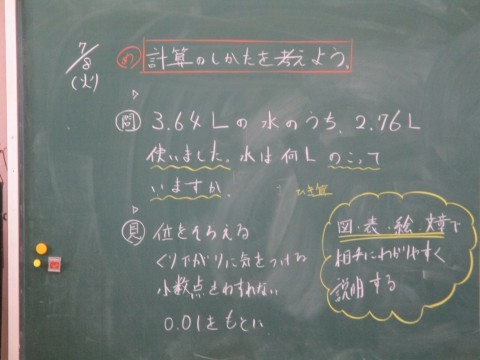 7/8
(火)
め 計算のしかたを考えよう。
問 3.64Lの水のうち、2.76L
使いました。水は何Lのこって
いますか。
ひき算
見 位をそろえる
くり下がりに気をつける
小数点をわすれない
0.01をもとに
図・表・絵・文章で
相手にわかりやすく
説明する